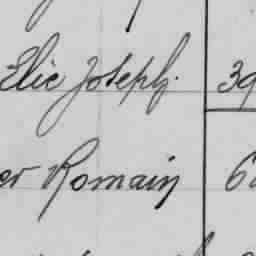 Elie Joseph. 39
er Romain 6